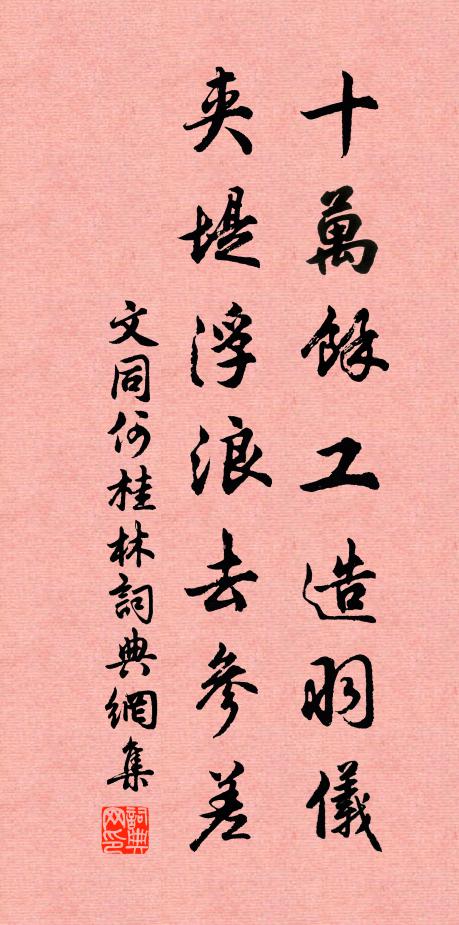 十萬餘工造羽儀
夾堤浮浪去參差
文同何桂林詞典網集
詞典网印